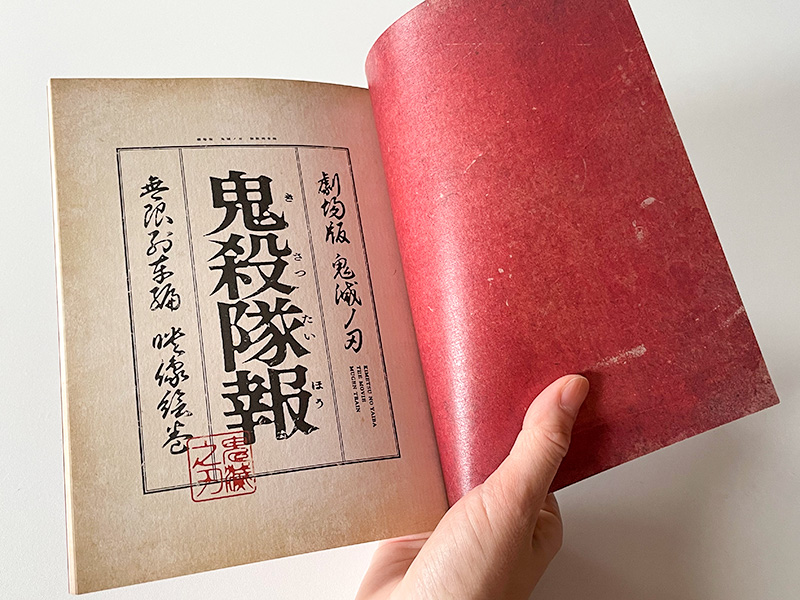 劇場版 鬼滅ノ刃
KIMETSU NO YAIBA
THE MOVIE
MUGEN TRAIN
鬼殺隊報
きさつたいほう
無限列車編 映像絵巻
鬼滅之刃